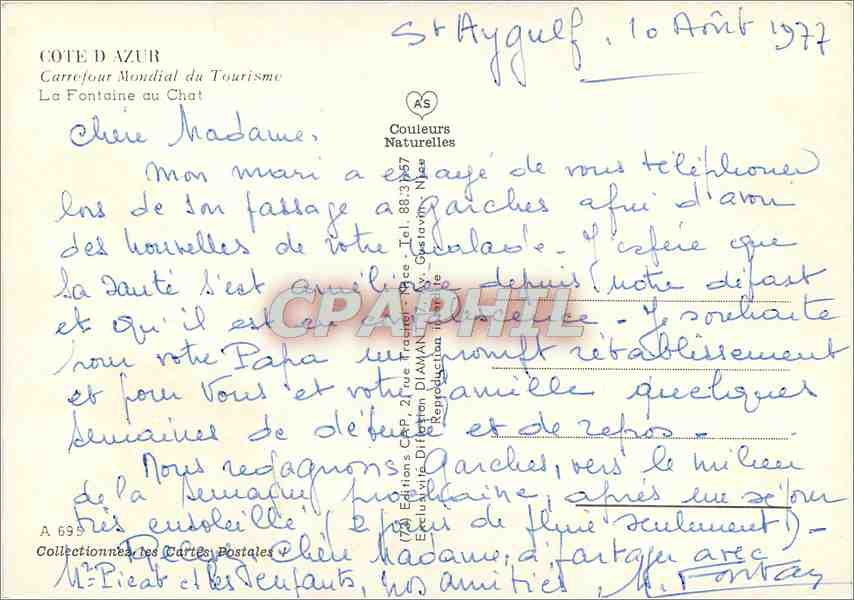 St Aygulf, 10 Août 1977
COTE D AZUR
Carrefour Mondial du Tourisme
La Fontaine au Chat
AS
Couleurs
Naturelles
Chère Madame,
Mon mari a essayé de vous téléphoner
lors de son passage à Garches afin d'avoir
des nouvelles de votre malade. J'espère que
sa santé s'est améliorée depuis notre départ
et qu'il est en convalescence - Je souhaite
pour votre Papa un prompt rétablissement
et pour vous et votre famille quelques
semaines de détente et de repos -
Nous regagnons Garches, vers le milieu
de la semaine prochaine, après un séjour
très ensoleillé (2 jours de pluie seulement) -
chère Madame, à partager avec
Mr Picat et les enfants, nos amitiés, M. Fontay
A 695
Collectionnez les Cartes Postales !
(72) Editions CAP, 2, rue Trachel - Nice - Tel. 88.31.57
Exclusivité Diffusion DIAMANT, Av. Gustavin, Nice
Reproduction interdite
CPAPHIL